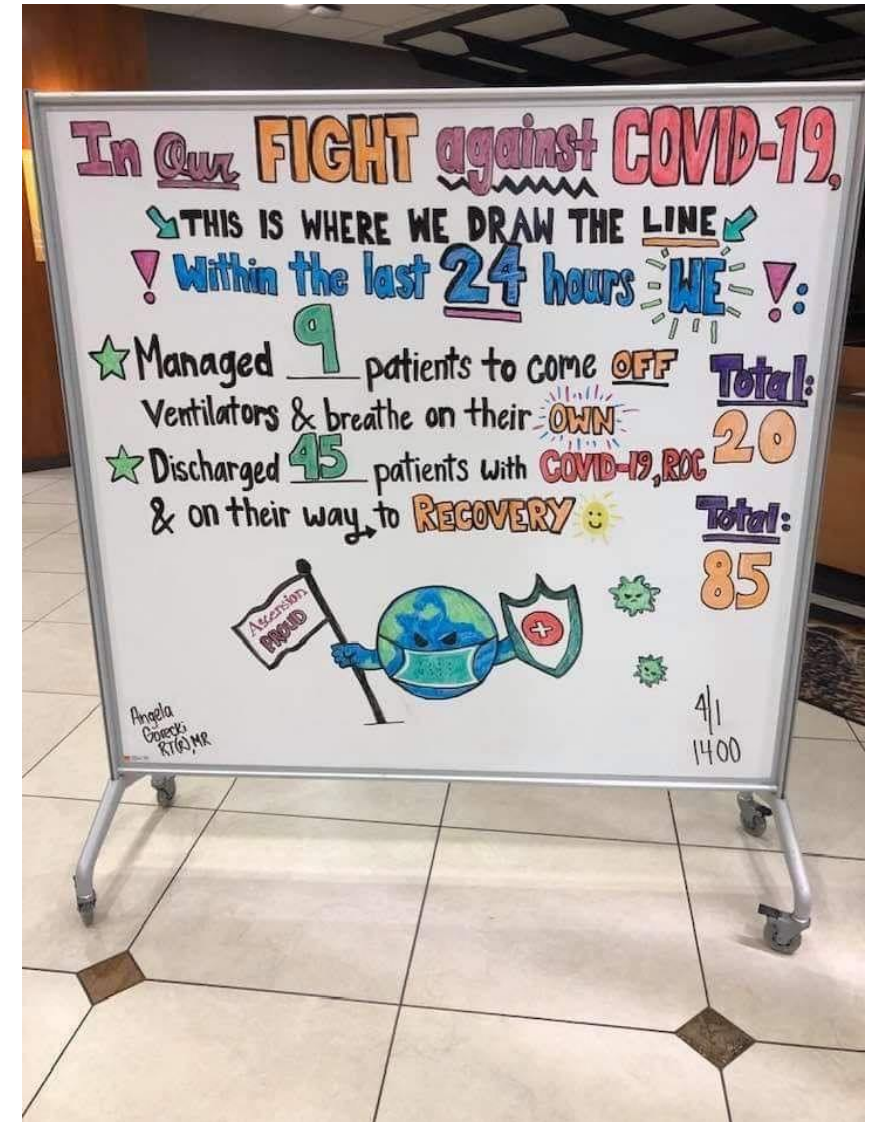 In Our FIGHT against COVID-19,
THIS IS WHERE WE DRAW THE LINE
! Within the last 24 hours WE !:
Managed 9 patients to come OFF
Ventilators & breathe on their OWN
Total:
20
Discharged 45 patients with COVID-19, ROC
& on their way to RECOVERY
Total:
85
Ascension
PROUD
Angela
Gorecki
RT(R), MR
4/1
1400